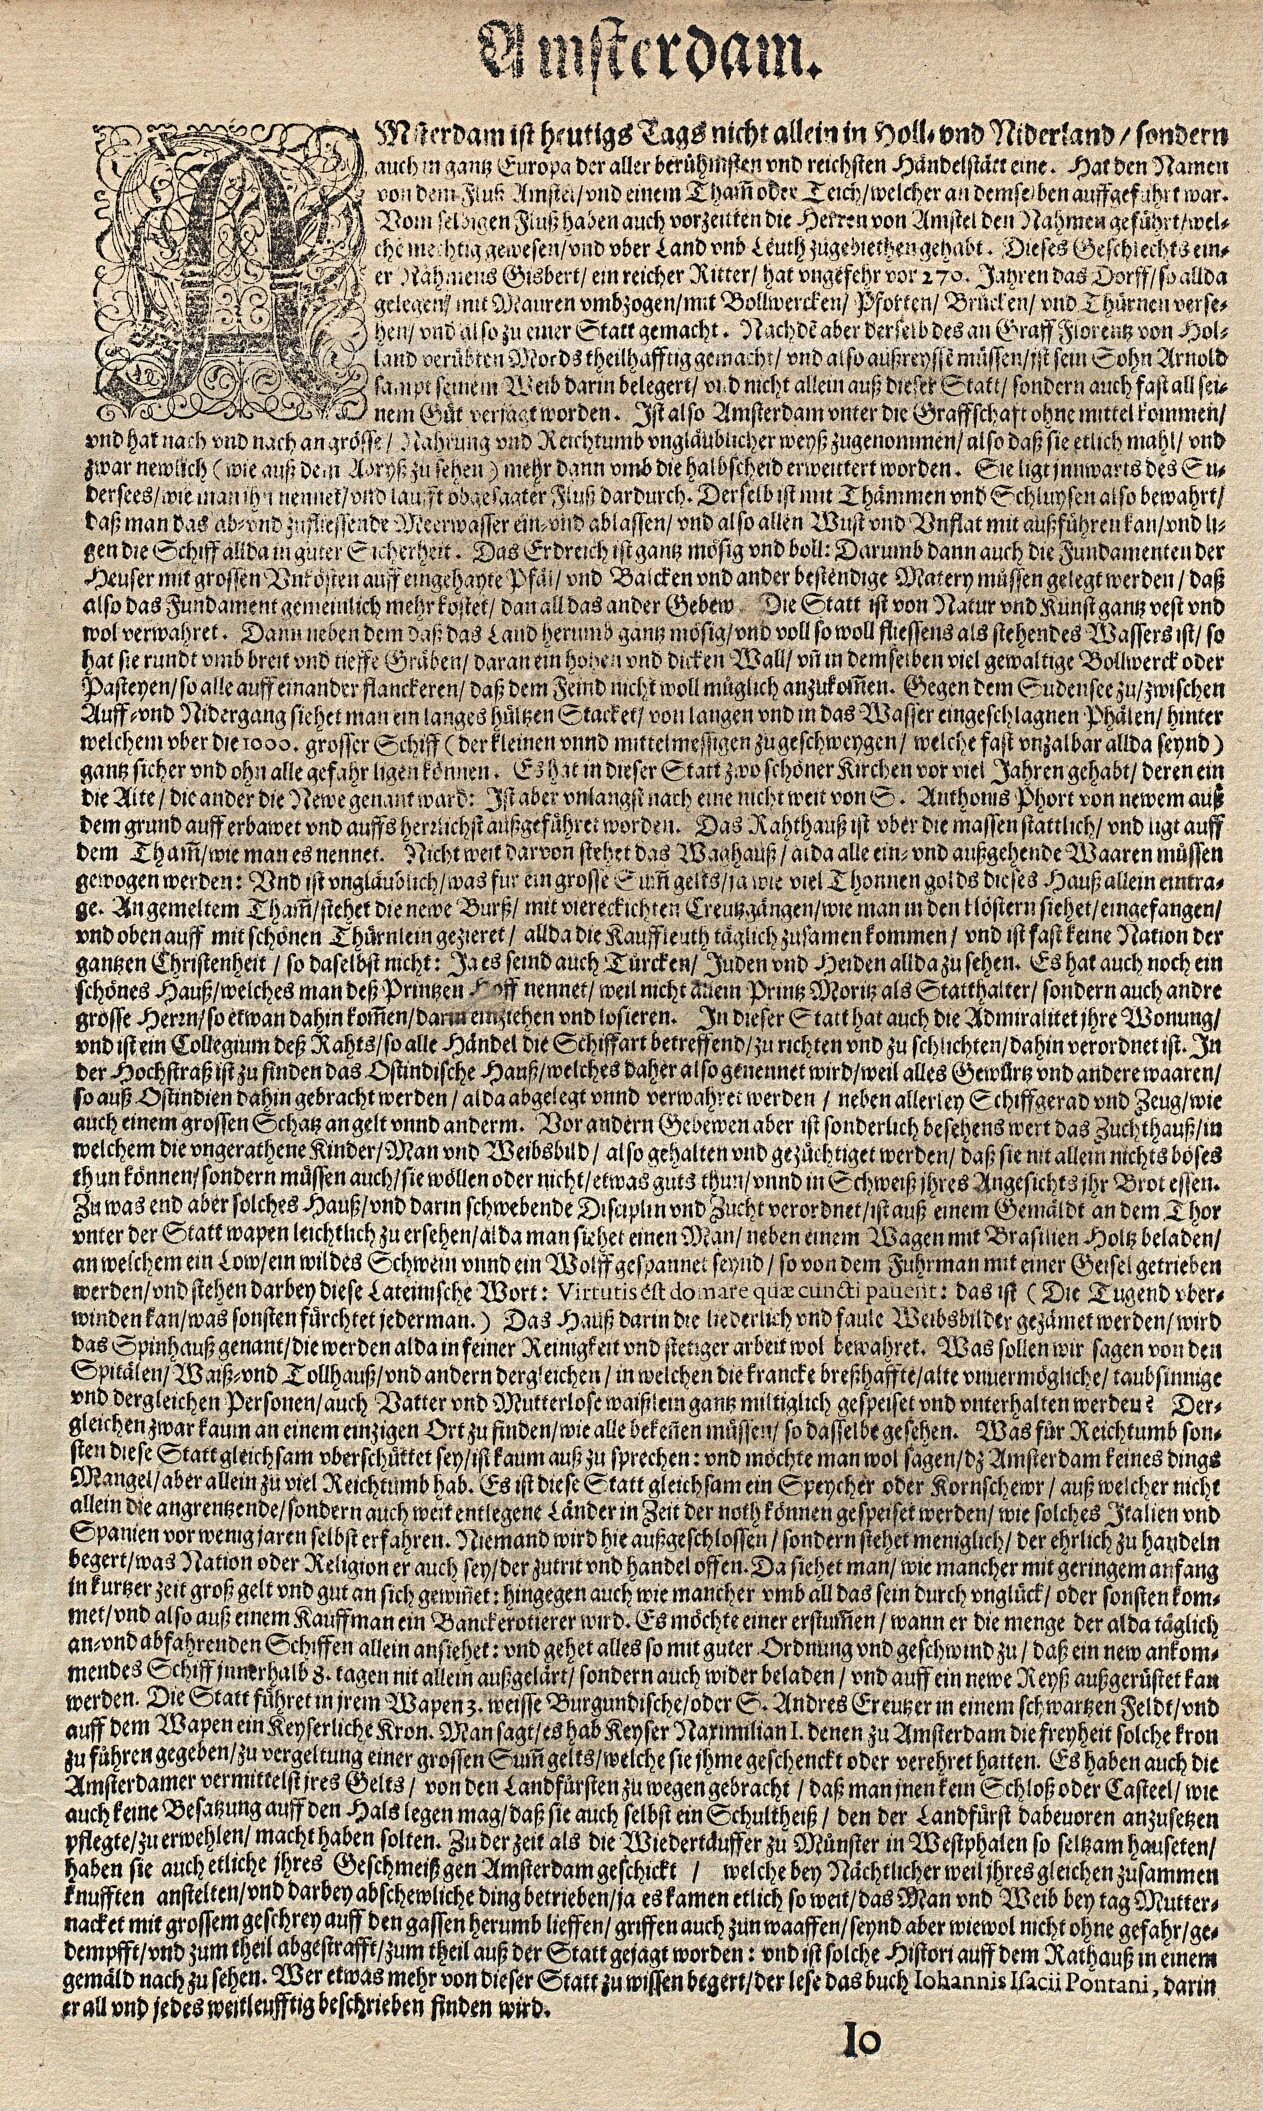 Amsterdam.
AMsterdam ist heutigs Tags nicht allein in Holl- vnd Niderland / sondern
auch in gantz Europa der aller berühmsten vnd reichsten Händelstätt eine. Hat den Namen
von dem Fluß Amstel / vnd einem Tham̃ oder Teich / welcher an demselben auffgeführt war.
Vom selbigen Fluß haben auch vorzeitten die Herren von Amstel den Nahmen geführt / wel-
che mechtig gewesen / vnd vber Land vnd Leuth zugebietthen gehabt. Dieses Geschlechts ein-
er Nahmens Gisbert / ein reicher Ritter / hat vngefehr vor 270. Jahren das Dorff / so allda
gelegen / mit Mauren vmbzogen / mit Bollwercken / Pforten / Brücken / vnd Thürnen verse-
hen / vnd also zu einer Statt gemacht. Nachdẽ aber derselb des an Graff Florentz von Hol-
land verübten Mords theilhafftig gemacht / vnd also außreyssẽ müssen / ist sein Sohn Arnold
sampt seinem Weib darin belegert / vnd nicht allein auß dieser Statt / sondern auch fast all sei-
nem Gut verjagt worden. Ist also Amsterdam vnter die Graffschaft ohne mittel kommen /
vnd hat nach vnd nach an grösse / Nahrung vnd Reichtumb vngläublicher weyß zugenommen / also daß sie etlich mahl / vnd
zwar newlich (wie auß dem Abryß zu sehen) mehr dann vmb die halbscheid erweittert worden. Sie ligt innwarts des Su-
dersees / wie man ihn nennet / vnd laufft obgesagter Fluß dardurch. Derselb ist mit Thämmen vnd Schluysen also bewahrt /
daß man das ab- vnd zufliessende Meerwasser ein- vnd ablassen / vnd also allen Wust vnd Vnflat mit außführen kan / vnd li-
gen die Schiff allda in guter Sicherheit. Das Erdreich ist gantz mösig vnd boll: Darumb dann auch die Fundamenten der
Heuser mit grossen Vnkosten auff eingehayte Pfäl / vnd Balcken vnd ander bestendige Matery müssen gelegt werden / daß
also das Fundament gemeinlich mehr kostet / dan all das ander Gebew. Die Statt ist von Natur vnd Kunst gantz vest vnd
wol verwahret. Dann neben dem daß das Land herumb gantz mösig / vnd voll so woll fliessens als stehendes Wassers ist / so
hat sie rundt vmb breit vnd tieffe Gräben / daran ein hohen vnd dicken Wall / vñ in demselben viel gewaltige Bollwerck oder
Pasteyen / so alle auff einander flanckeren / daß dem Feind nicht woll müglich anzukom̃en. Gegen dem Sudensee zu / zwischen
Auff- vnd Nidergang siehet man ein langes hültzen Stacket / von langen vnd in das Wasser eingeschlagnen Phälen / hinter
welchem vber die 1000. grosser Schiff (der kleinen vnnd mittelmessigen zu geschweygen / welche fast vnzalbar allda seynd)
gantz sicher vnd ohn alle gefahr ligen können. Es hat in dieser Statt zwo schöner Kirchen vor viel Jahren gehabt / deren ein
die Alte / die ander die Newe genant ward: Ist aber vnlangst nach eine nicht weit von S. Anthonis Phort von newem auß
dem grund auff erbawet vnd auffs herrlichst außgeführet worden. Das Rahthauß ist vber die massen stattlich / vnd ligt auff
dem Tham̃ / wie man es nennet. Nicht weit darvon stehet das Waghauß / alda alle ein- vnd außgehende Waaren müssen
gewogen werden: Vnd ist vngläublich / was für ein grosse Sum̃ gelts / ja wie viel Thonnen golds dieses Hauß allein eintra-
ge. An gemeltem Tham̃ / stehet die newe Burß / mit viereckichten Creutzgängen / wie man in den klöstern siehet / eingefangen /
vnd oben auff mit schönen Thürnlein gezieret / allda die Kauffleuth täglich zusamen kommen / vnd ist fast keine Nation der
gantzen Christenheit / so daselbst nicht: Ja es seind auch Türcken / Juden vnd Heiden allda zu sehen. Es hat auch noch ein
schönes Hauß / welches man deß Printzen Hoff nennet / weil nicht allein Printz Moritz als Statthalter / sondern auch andre
grosse Herrn / so etwan dahin kom̃en / darin einziehen vnd losieren. In dieser Statt hat auch die Admiralitet jhre Wonung /
vnd ist ein Collegium deß Rahts / so alle Händel die Schiffart betreffend / zu richten vnd zu schlichten / dahin verordnet ist. In
der Hochstraß ist zu finden das Ostindische Hauß / welches daher also genennet wird / weil alles Gewürtz vnd andere waaren /
so auß Ostindien dahin gebracht werden / alda abgelegt vnnd verwahret werden / neben allerley Schiffgerad vnd Zeug / wie
auch einem grossen Schatz an gelt vnnd anderm. Vor andern Gebewen aber ist sonderlich besehens wert das Zuchthauß / in
welchem die vngerathene Kinder / Man vnd Weibsbild / also gehalten vnd gezüchtiget werden / daß sie nit allein nichts böses
thun können / sondern müssen auch / sie wöllen oder nicht / etwas guts thun / vnnd in Schweiß jhres Angesichts jhr Brot essen.
Zu was end aber solches Hauß / vnd darin schwebende Disciplin vnd Zucht verordnet / ist auß einem Gemäldt an dem Thor
vnter der Statt wapen leichtlich zu ersehen / alda man siehet einen Man / neben einem Wagen mit Brasilien Holtz beladen /
an welchem ein Low / ein wildes Schwein vnnd ein Wolff gespannet seynd / so von dem Fuhrman mit einer Geisel getrieben
werden / vnd stehen darbey diese Lateinische Wort: Virtutis est domare quæ cuncti pavent: das ist (Die Tugend vber-
winden kan / was sonsten fürchtet jederman.) Das Hauß darin die liederlich vnd faule Weibsbilder gezämet werden / wird
das Spinhauß genant / die werden alda in feiner Reinigkeit vnd stetiger arbeit wol bewahret. Was sollen wir sagen von den
Spitälen / Waiß- vnd Tollhauß / vnd andern dergleichen / in welchen die krancke breßhaffte / alte vnvermögliche / taubsinnige
vnd dergleichen Personen / auch Vatter vnd Mutterlose waißlein gantz miltiglich gespeiset vnd vnterhalten werden? Der-
gleichen zwar kaum an einem einzigen Ort zu finden / wie alle bekeñen müssen / so dasselbe gesehen. Was für Reichtumb son-
sten diese Statt gleichsam vberschüttet sey / ist kaum auß zu sprechen: vnd möchte man wol sagen / dz Amsterdam keines dings
Mangel / aber allein zu viel Reichtumb hab. Es ist diese Statt gleichsam ein Speycher oder Kornschewr / auß welcher nicht
allein die angrentzende / sondern auch weit entlegene Länder in Zeit der noth können gespeiset werden / wie solches Italien vnd
Spanien vor wenig jaren selbst erfahren. Niemand wird hie außgeschlossen / sondern stehet meniglich / der ehrlich zu handeln
begert / was Nation oder Religion er auch sey / der zutrit vnd handel offen. Da siehet man / wie mancher mit geringem anfang
in kurtzer zeit groß gelt vnd gut an sich gewiñet: hingegen auch wie mancher vmb all das sein durch vnglück / oder sonsten kom-
met / vnd also auß einem Kauffman ein Banckerotierer wird. Es möchte einer erstum̃en / wann er die menge der alda täglich
an- vnd abfahrenden Schiffen allein ansiehet: vnd gehet alles so mit guter Ordnung vnd geschwind zu / daß ein new ankom-
mendes Schiff jnnerhalb 8. tagen nit allein außgelärt / sondern auch wider beladen / vnd auff ein newe Reyß außgerüstet kan
werden. Die Statt führet in jrem Wapen 3. weisse Burgundische / oder S. Andres Creutzer in einem schwartzen Feldt / vnd
auff dem Wapen ein Keyserliche Kron. Man sagt / es hab Keyser Naximilian I. denen zu Amsterdam die freyheit solche kron
zu führen gegeben / zu vergeltung einer grossen Sum̃ gelts / welche sie jhme geschenckt oder verehret hatten. Es haben auch die
Amsterdamer vermittelst jres Gelts / von den Landfürsten zu wegen gebracht / daß man jnen kein Schloß oder Casteel / wie
auch keine Besatzung auff den Hals legen mag / daß sie auch selbst ein Schultheiß / den der Landfürst dabevoren anzusetzen
pflegte / zu erwehlen / macht haben solten. Zu der zeit als die Wiedertäuffer zu Münster in Westphalen so seltzam hauseten /
haben sie auch etliche jhres Geschmeiß gen Amsterdam geschickt / welche bey Nächtlicher weil jhres gleichen zusammen
knufften anstelten / vnd darbey abschewliche ding betrieben / ja es kamen etlich so weit / das Man vnd Weib bey tag Mutter-
nacket mit grossem geschrey auff den gassen herumb lieffen / griffen auch zun waaffen / seynd aber wiewol nicht ohne gefahr / ge-
dempfft / vnd zum theil abgestrafft / zum theil auß der Statt gejagt worden: vnd ist solche Histori auff dem Rathauß in einem
gemäld nach zu sehen. Wer etwas mehr von dieser Statt zu wissen begert / der lese das buch Iohannis Isacii Pontani, darin
er all vnd jedes weitleufftig beschrieben finden wird.
Io